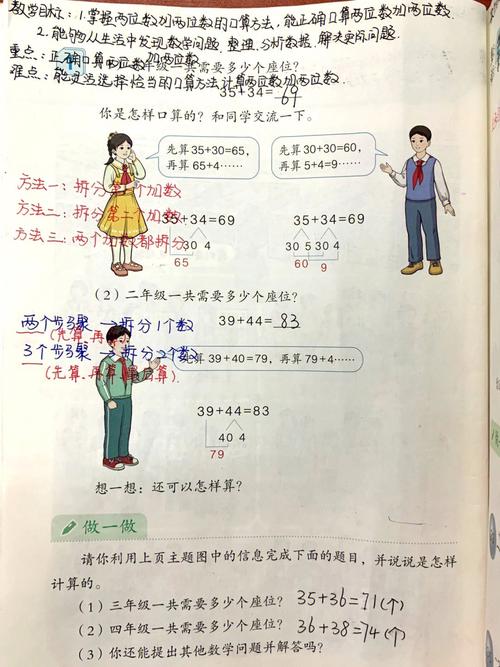 教学目标：1.掌握两位数加两位数的口算方法，能正确口算两位数加两位数.
2.能够从生活中发现数学问题，整理、分析数据，解决实际问题.
重点：正确口算两位数加两位数
年级一共需要多少个座位？
难点：能灵活选择恰当的口算方法计算两位数加两位数.
35+34=69
你是怎样口算的？和同学交流一下。
先算35+30=65，
再算65+4……
先算30+30=60，
再算5+4=9……
方法一：拆分第一个加数
方法二：拆分第二个加数
方法三：两个加数都拆分
35+34=69
30 4
65
35+34=69
30 5 30 4
60 9
（2）二年级一共需要多少个座位？
39+44=83
两个步骤→拆分1个数
(先算.再算)
3个步骤→拆分2个数
(先算.再算.口算).
先算39+40=79，再算79+4……
39+44=83
40 4
79
想一想：还可以怎样算？
做一做
请你利用上页主题图中的信息完成下面的题目，并说说是怎样
计算的。
（1）三年级一共需要多少个座位？ 35+36=71(个)
（2）四年级一共需要多少个座位？ 36+38=74(个)
（3）你还能提出其他数学问题并解答吗？